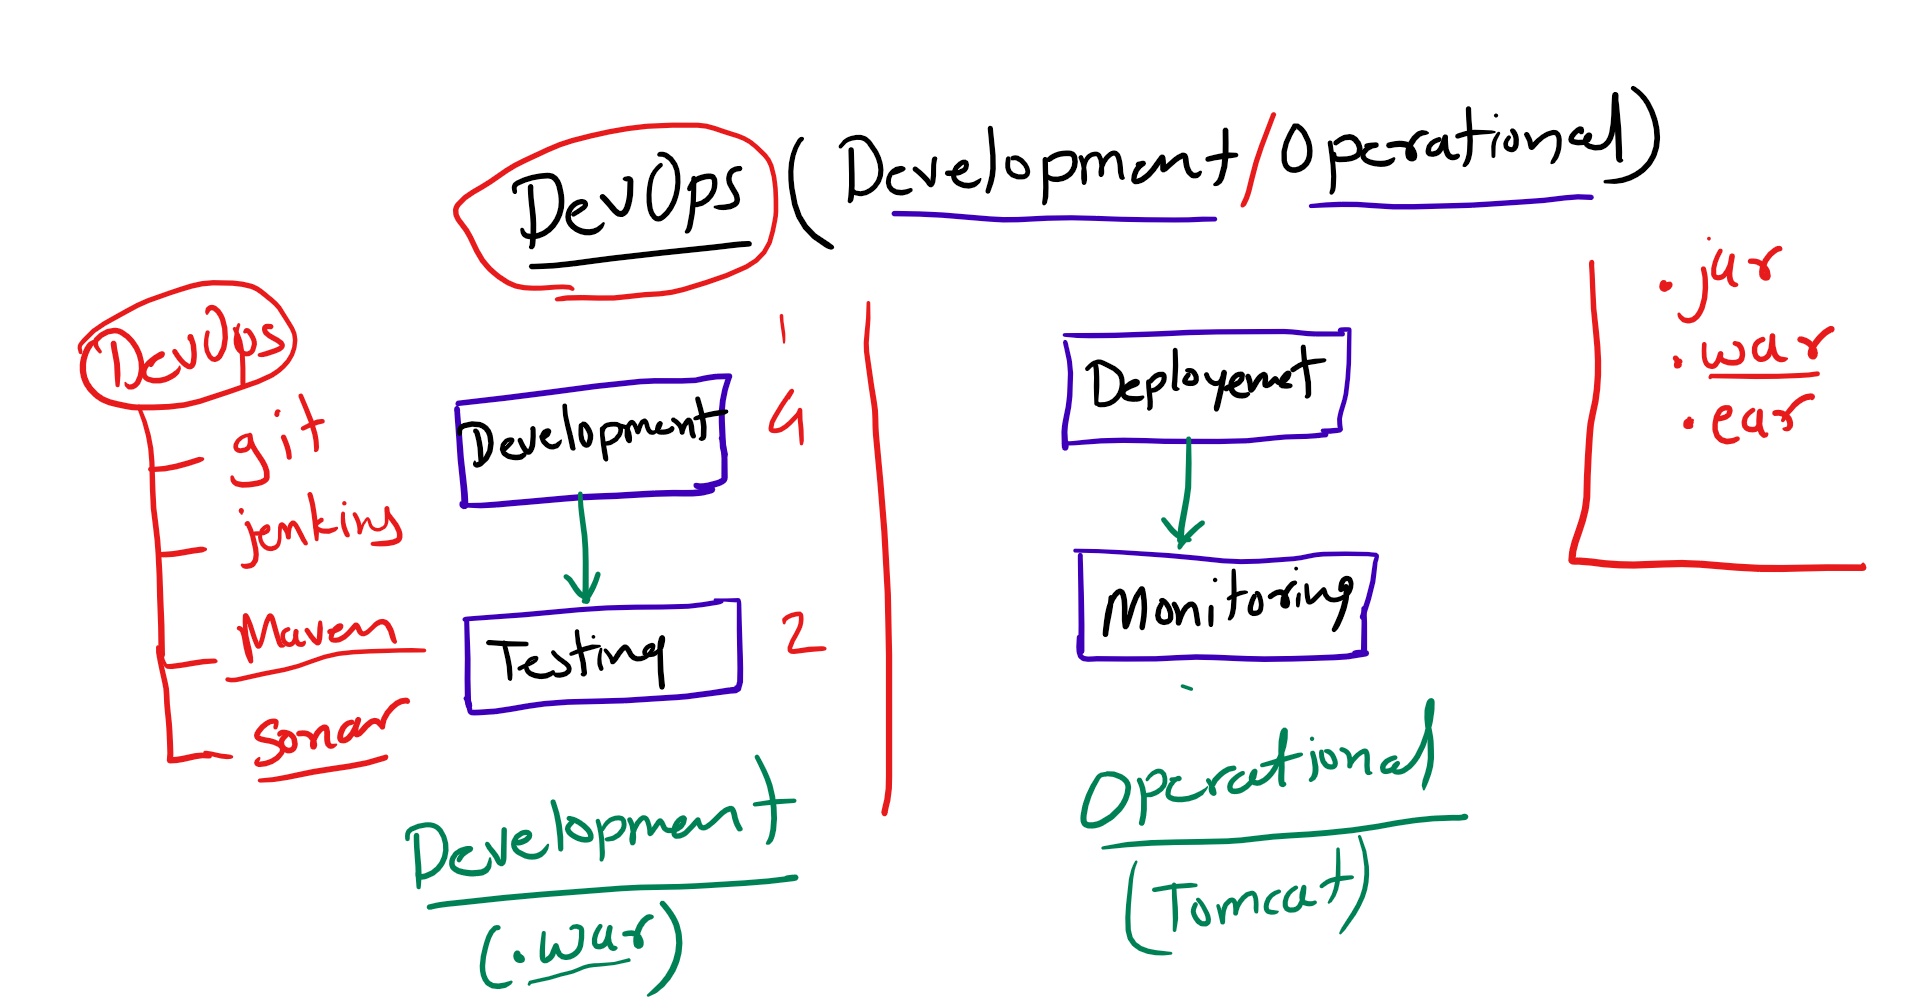 DevOps (Development/Operational)
DevOps
git
jenkins
Maven
Sonar
1
Development 4
Testing 2
Development
(.war)
Deployemet
Monitoring
Operational
(Tomcat)
.jar
.war
.ear